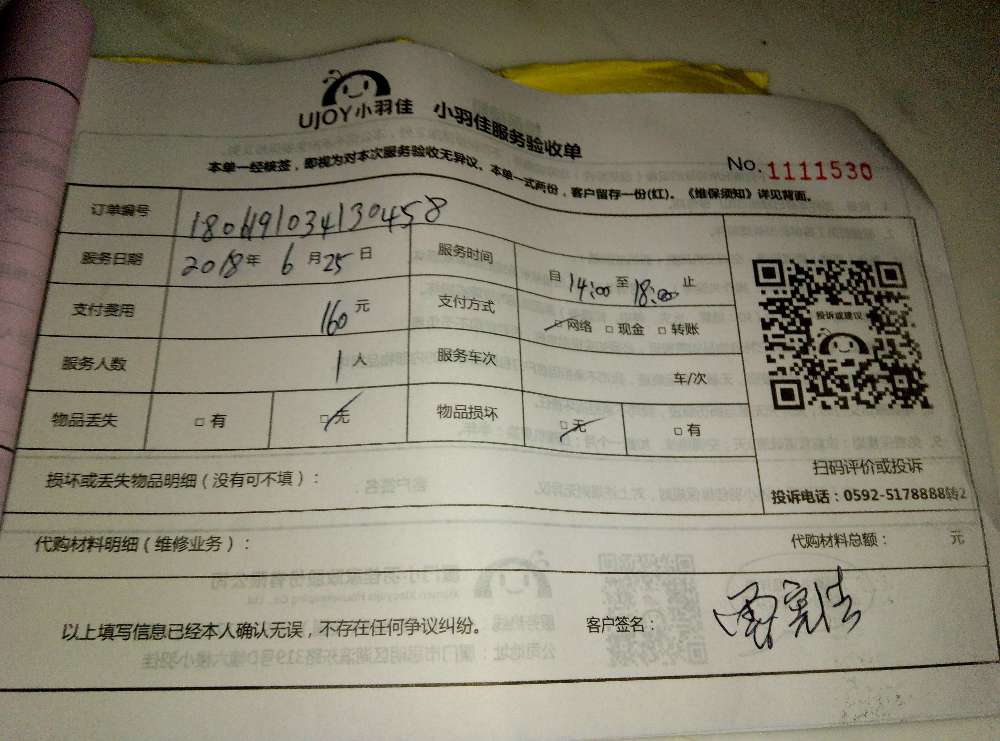 UJOY小羽佳 小羽佳服务验收单
本单一经核签，即视为对本次服务验收无异议。本单一式两份，客户留存一份(红)。《维保须知》详见背面。
No.1111530
订单编号
服务日期 2018年 6月25日 服务时间 自14:00至18:00止
支付费用 160元 支付方式 □网络 □现金 □转账
服务人数 1人 服务车次 车/次
物品丢失 □有 □无 物品损坏 □无 □有
投诉或建议
扫码评价或投诉
投诉电话：0592-5178888转2
损坏或丢失物品明细（没有可不填）：
代购材料明细（维修业务）： 代购材料总额： 元
以上填写信息已经本人确认无误，不存在任何争议纠纷。 客户签名：